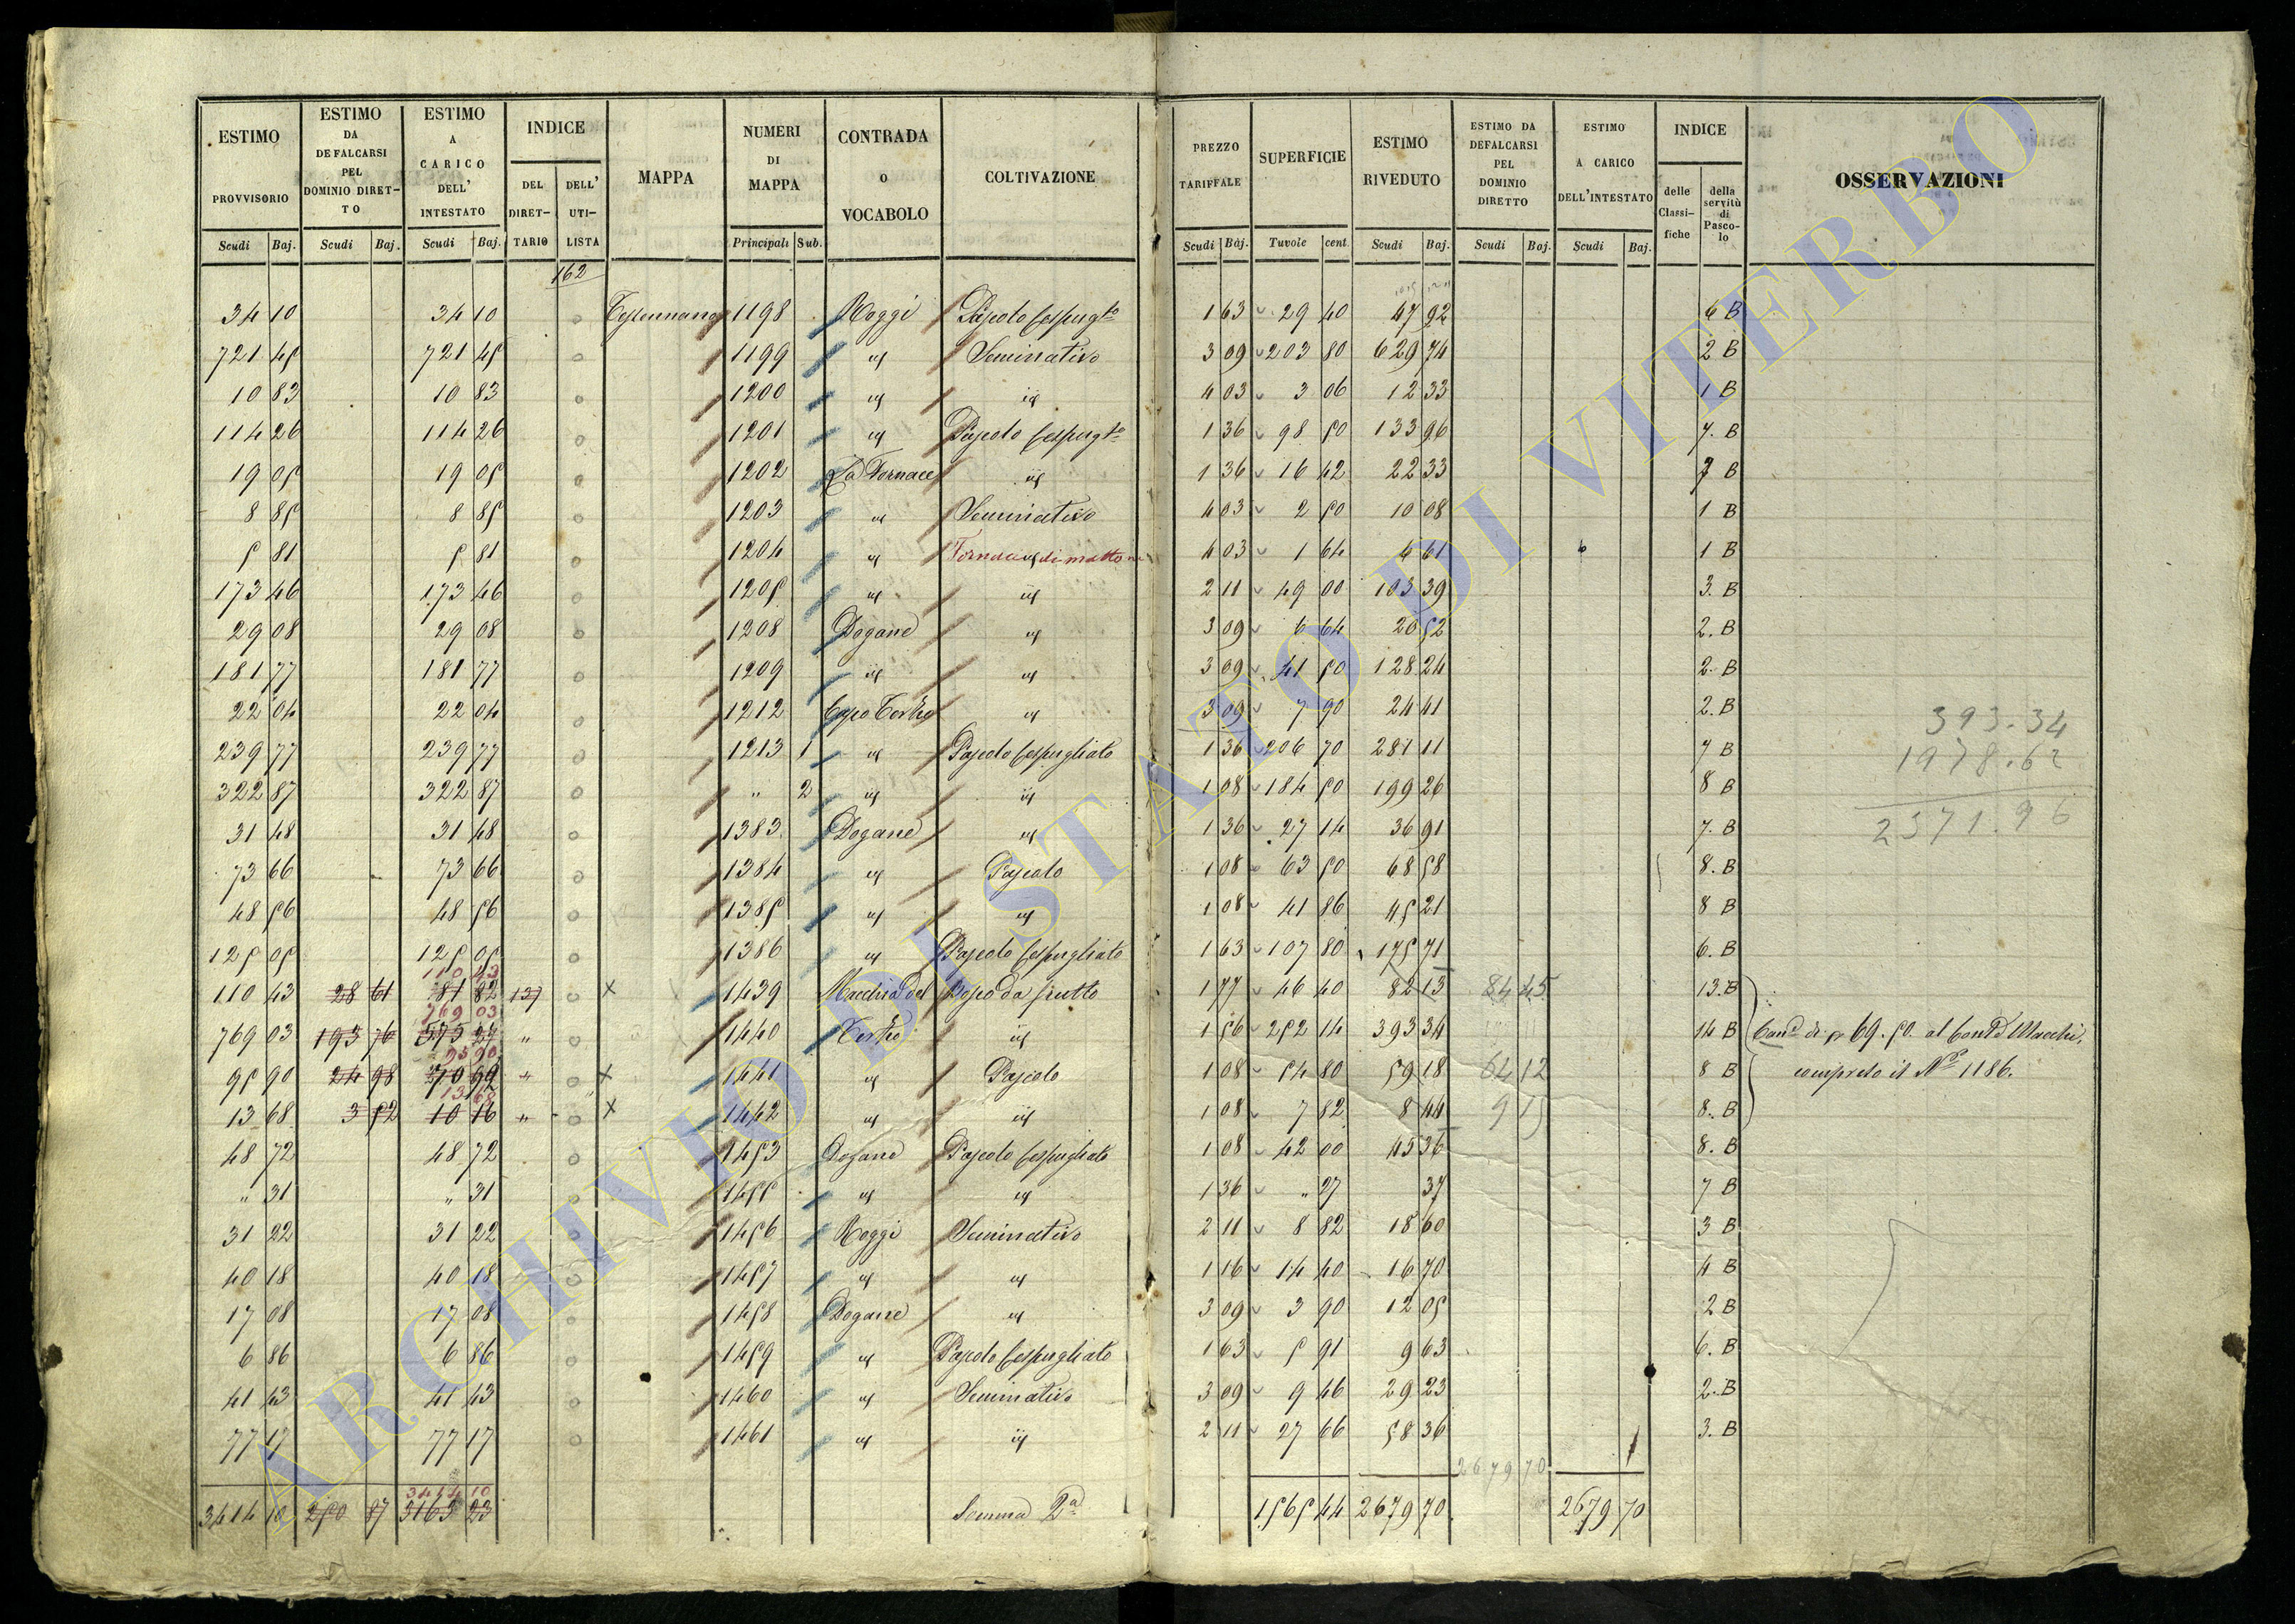 ESTIMO PROVVISORIO Scudi Baj. | ESTIMO DA DEFALCARSI PEL DOMINIO DIRETTO Scudi Baj. | ESTIMO A CARICO DELL' INTESTATO Scudi Baj. | INDICE DEL DIRETTARIO DELL' UTILISTA | MAPPA | NUMERI DI MAPPA Principali Sub. | CONTRADA O VOCABOLO | COLTIVAZIONE | PREZZO TARIFFALE Scudi Baj. | SUPERFICIE Tuvole cent. | ESTIMO RIVEDUTO Scudi Baj. | ESTIMO DA DEFALCARSI PEL DOMINIO DIRETTO Scudi Baj. | ESTIMO A CARICO DELL'INTESTATO Scudi Baj. | INDICE delle Classifiche della servitù di Pascolo | OSSERVAZIONI
162
34 10 34 10 1198 Roggi Pascolo Cespugto 1 63 29 40 47 92 6 B
721 45 721 45 1199 id Seminativo 3 09 203 80 629 74 2 B
10 83 10 83 1200 id id 4 03 3 06 12 33 1 B
114 26 114 26 1201 id Pascolo Cespugto 1 36 98 50 133 96 7. B
19 05 19 05 1202 La Fornace id 1 36 16 42 22 33 7 B
8 85 8 85 1203 id Seminativo 4 03 2 50 10 08 1 B
5 81 5 81 1204 id id Fornace di matto 4 03 1 64 6 61 1 B
173 46 173 46 1205 id id 2 11 49 00 103 39 3. B
29 08 29 08 1208 Dogane id 3 09 6 64 20 52 2. B
181 77 181 77 1209 id id 3 09 41 50 128 24 2. B
22 04 22 04 1212 Capo Terzo id 3 09 7 90 24 41 2. B
239 77 239 77 1213 1 id Pascolo Cespugliato 1 36 206 70 281 11 7 B
322 87 322 87 " 2 id id 1 08 184 50 199 26 8 B
31 48 31 48 1383 Dogane id 1 36 27 14 36 91 7. B
73 66 73 66 1384 id Pascolo 1 08 63 50 68 58 8. B
48 56 48 56 1385 id id 1 08 41 86 45 21 8 B
125 05 125 05 1386 id Pascolo Cespugliato 1 63 107 80 175 71 6. B
110 43
110 43 28 61 81 82 137 X 1439 Macchia del Bosco da frutto 1 77 46 40 82 13 84 45 13. B
769 03
769 03 193 76 575 27 " 1440 Terzo id 1 56 252 14 393 34 14 B Cane di sc 69.50. al Conte Macchi,
95 90
95 90 24 98 70 92 " X 1441 id Pascolo 1 08 54 80 59 18 64 12 8 B compreso il No 1186.
13 68
13 68 3 52 10 16 " X 1442 id id 1 08 7 82 8 44 9 15 8. B
48 72 48 72 1453 Dogane Pascolo Cespugliato 1 08 42 00 45 36 8. B
" 31 " 31 1455 id id 1 36 " 27 37 7 B
31 22 31 22 1456 Roggi Seminativo 2 11 8 82 18 60 3 B
40 18 40 18 1457 id id 1 16 14 40 16 70 4 B
17 08 17 08 1458 Dogane id 3 09 3 90 12 05 2 B
6 86 6 86 1459 id Pascolo Cespugliato 1 63 5 91 9 63 6. B
41 43 41 43 1460 id Seminativo 3 09 9 46 29 23 2. B
77 17 77 17 1461 id id 2 11 27 66 58 36 3. B
2679 70
3414 10
3414 10 250 87 3163 23 Somma Pa 1565 44 2679 70 2679 70
393.34
1978.62
2371.96
ARCHIVIO DI STATO DI VITERBO